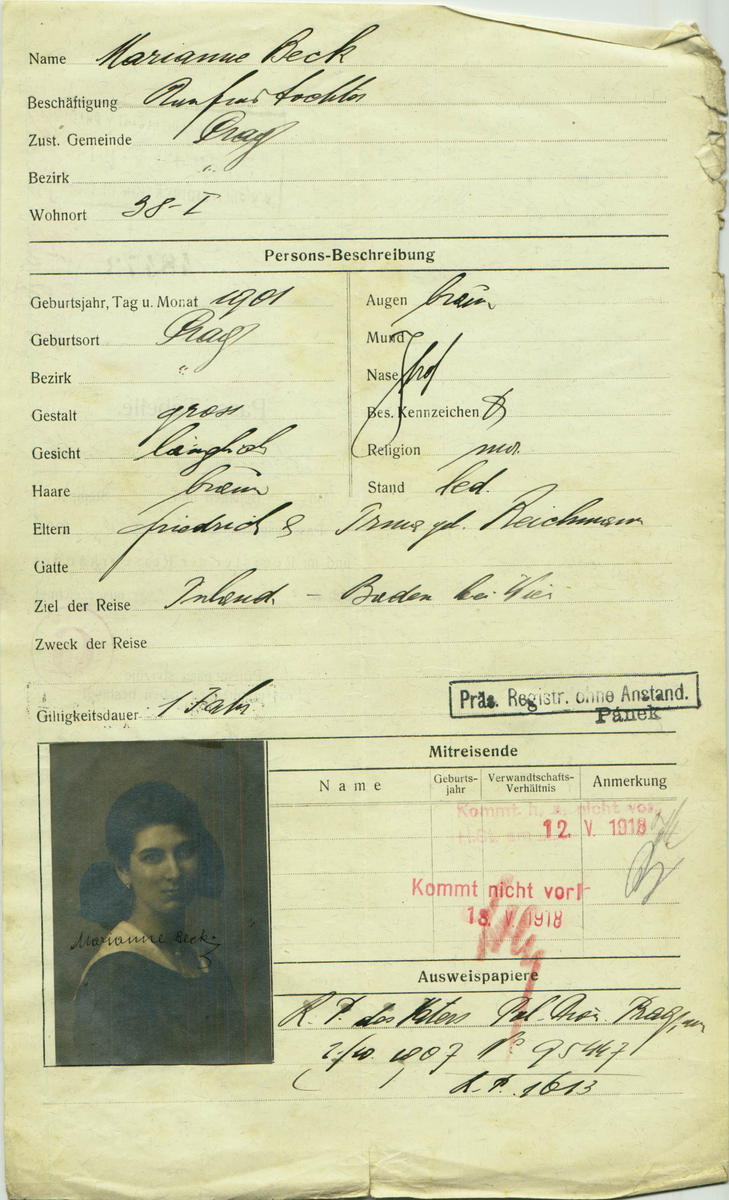 Name Marianne Beck
Beschäftigung tochter
Zust. Gemeinde Prag
Bezirk "
Wohnort 38-I
Persons-Beschreibung
Geburtsjahr, Tag u. Monat 1901
Geburtsort Prag
Bezirk "
Gestalt gross
Gesicht länglich
Haare braun
Augen braun
Mund
Nase
Bes. Kennzeichen
Religion mos.
Stand led.
Eltern Friedrich & Irma geb. Reichmann
Gatte
Ziel der Reise Inland. - Baden bei Wien
Zweck der Reise
Giltigkeitsdauer 1 Jahr
Präs. Registr. ohne Anstand.
Pánek
Mitreisende
Name
Geburts-
jahr
Verwandtschafts-
Verhältnis
Anmerkung
Kommt h. a. nicht vor.
12. V. 1918
Kommt nicht vor!
18. V. 1918
Marianne Beck
Ausweispapiere
R. P. des Vaters Pol. Dion. Prag, 
1907 No 95447
R. P. 1613